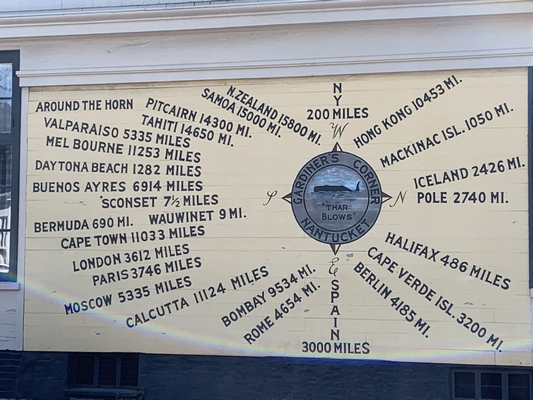 AROUND THE HORN
PITCAIRN 14300 MI.
SAMOA 15000 MI.
N. ZEALAND 15800 MI.
NY
200 MILES
W
HONG KONG 10453 MI.
MACKINAC ISL. 1050 MI.
VALPARAISO 5335 MILES
TAHITI 14650 MI.
MELBOURNE 11253 MILES
DAYTONA BEACH 1282 MILES
BUENOS AYRES 6914 MILES
'SCONSET 7½ MILES
BERMUDA 690 MI.
WAUWINET 9 MI.
CAPE TOWN 11033 MILES
LONDON 3612 MILES
PARIS 3746 MILES
MOSCOW 5335 MILES
CALCUTTA 11124 MILES
BOMBAY 9534 MI.
ROME 4654 MI.
S
GARDINER'S CORNER
"THAR
BLOWS"
NANTUCKET
N
ICELAND 2426 MI.
POLE 2740 MI.
HALIFAX 486 MILES
CAPE VERDE ISL. 3200 MI.
BERLIN 4185 MI.
E
SPAIN
3000 MILES